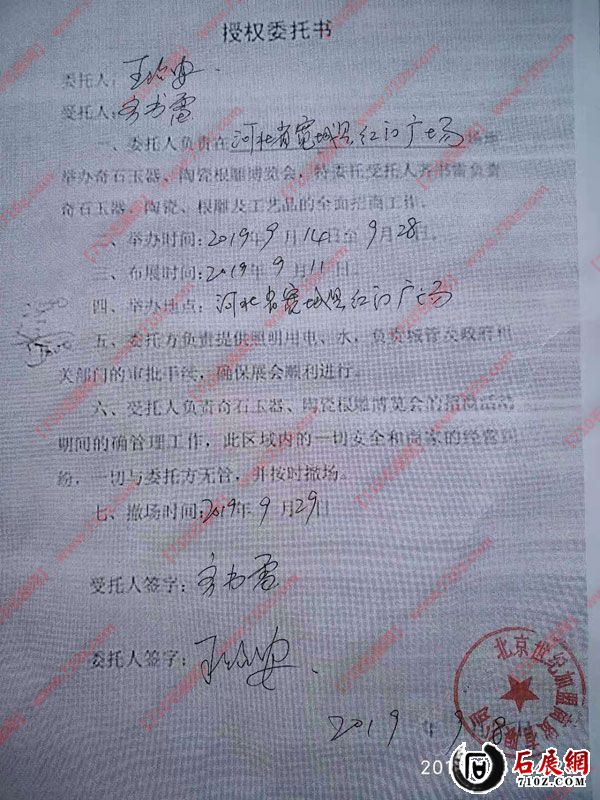 授权委托书
委托人:
受托人:齐书雷
一、委托人负责在河北省宽城县红门广场
举办奇石玉器、陶瓷根雕博览会,特委托受托人齐书雷负责
奇石玉器、陶瓷、根雕及工艺品的全面招商工作。
二、举办时间:2019年9月14日至9月28日。
三、布展时间:2019年9月11日。
四、举办地点:河北省宽城县红门广场
五、委托方负责提供照明用电、水,负责城管及政府相
关部门的审批手续,确保展会顺利进行。
六、受托人负责奇石玉器、陶瓷根雕博览会的招商活动
期间的确管理工作,此区域内的一切安全和商家的经营纠
纷,一切与委托方无管,并按时撤场。
七、撤场时间:2019年9月29日
受托人签字:齐书雷
委托人签字:
北京世纪加盟商贸有限公司
2019年9月8日
石展網
710Z.COM